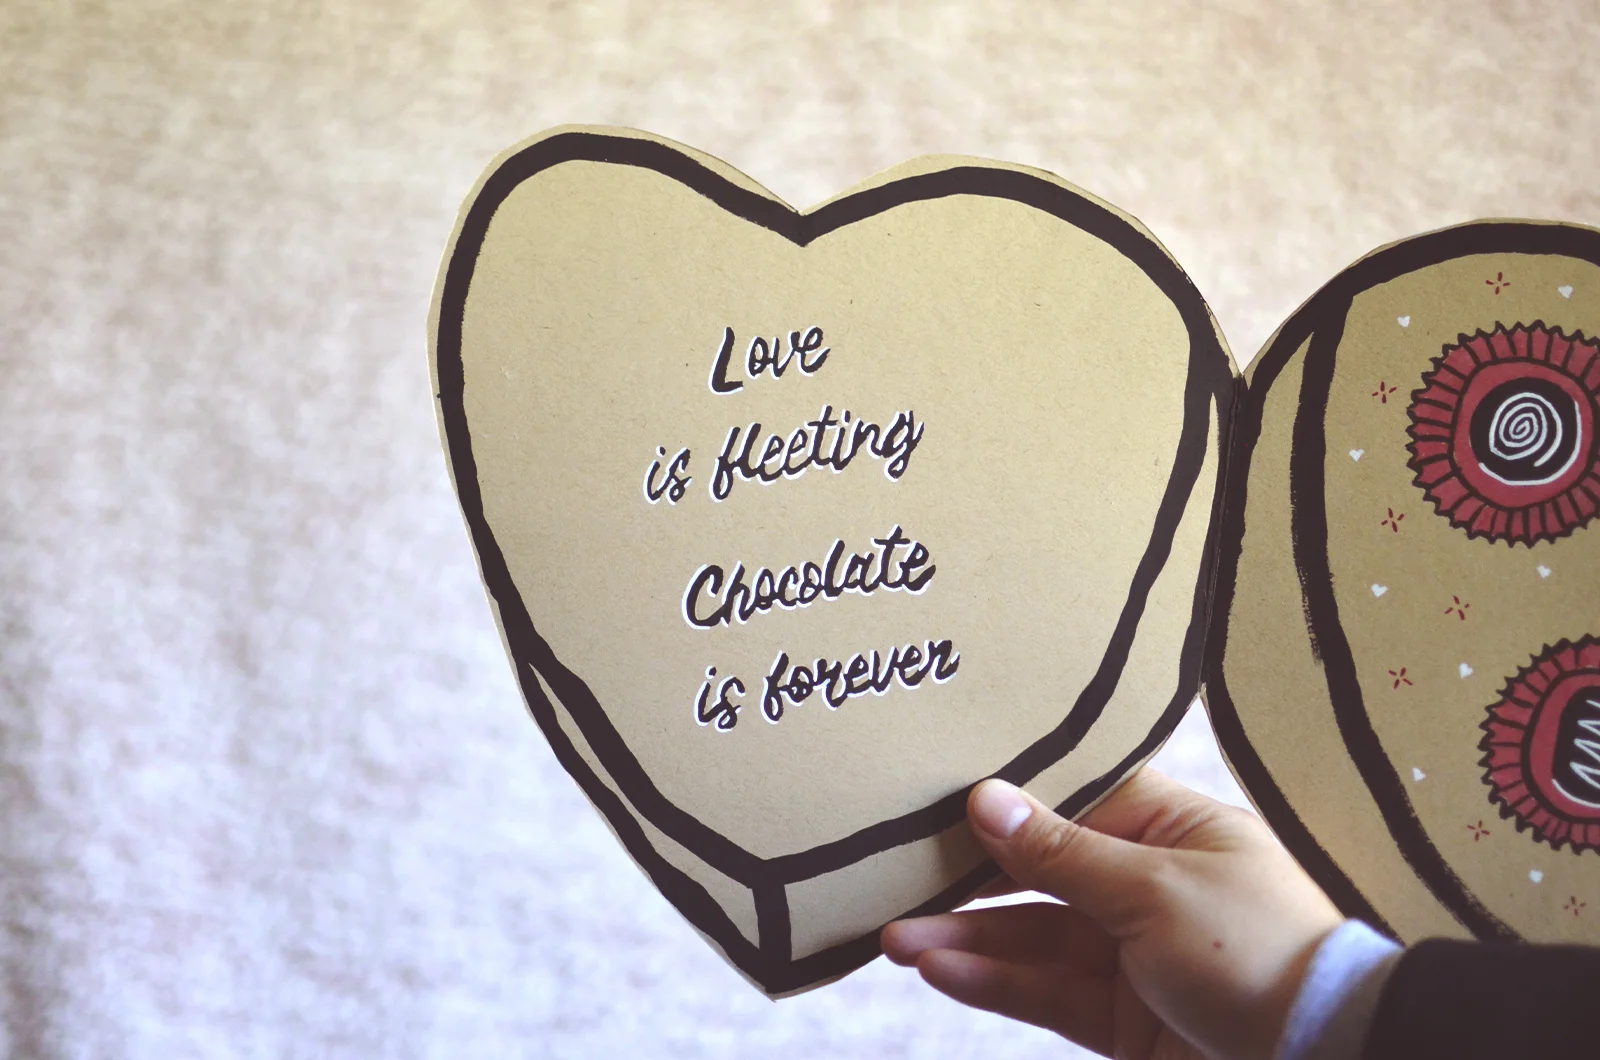 Love
is fleeting
Chocolate
is forever